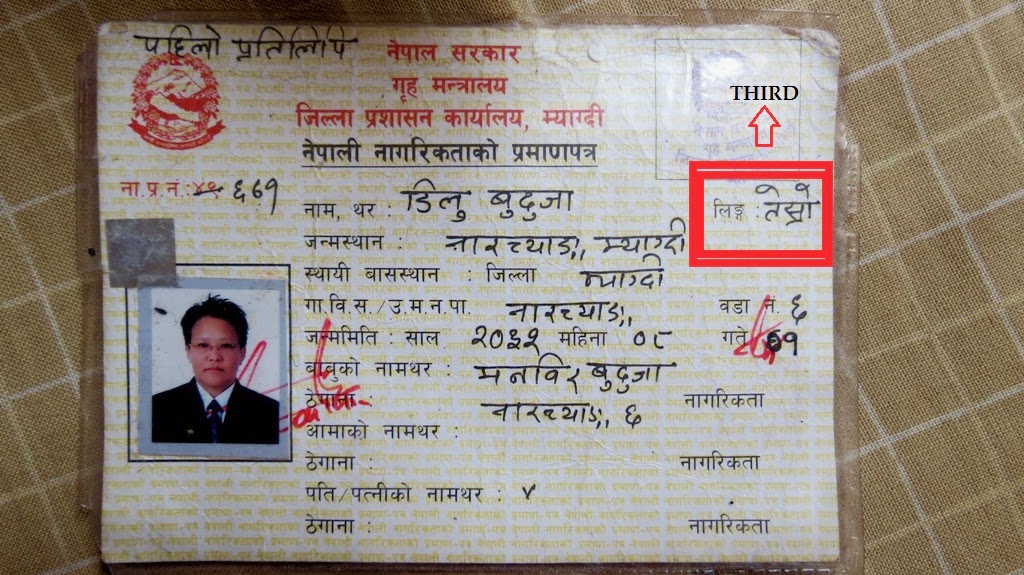 पहिलो प्रतिलिपि
नेपाल सरकार
गृह मन्त्रालय
जिल्ला प्रशासन कार्यालय, म्याग्दी
नेपाली नागरिकताको प्रमाणपत्र
THIRD
ना.प्र.नं.: ६७१
नाम, थर : डिलु बुदुजा
लिङ्ग : तेस्रो
जन्मस्थान : नारच्याङ, म्याग्दी
स्थायी वासस्थान : जिल्ला म्याग्दी
गा.वि.स./उ.म.न.पा. नारच्याङ, वडा नं. ६
जन्ममिति : साल २०३२ महिना ०८ गते
बाबुको नामथर : मनविर बुदुजा
ठेगाना नारच्याङ, ६ नागरिकता
आमाको नामथर :
ठेगाना : नागरिकता
पति/पत्नीको नामथर :
ठेगाना : नागरिकता